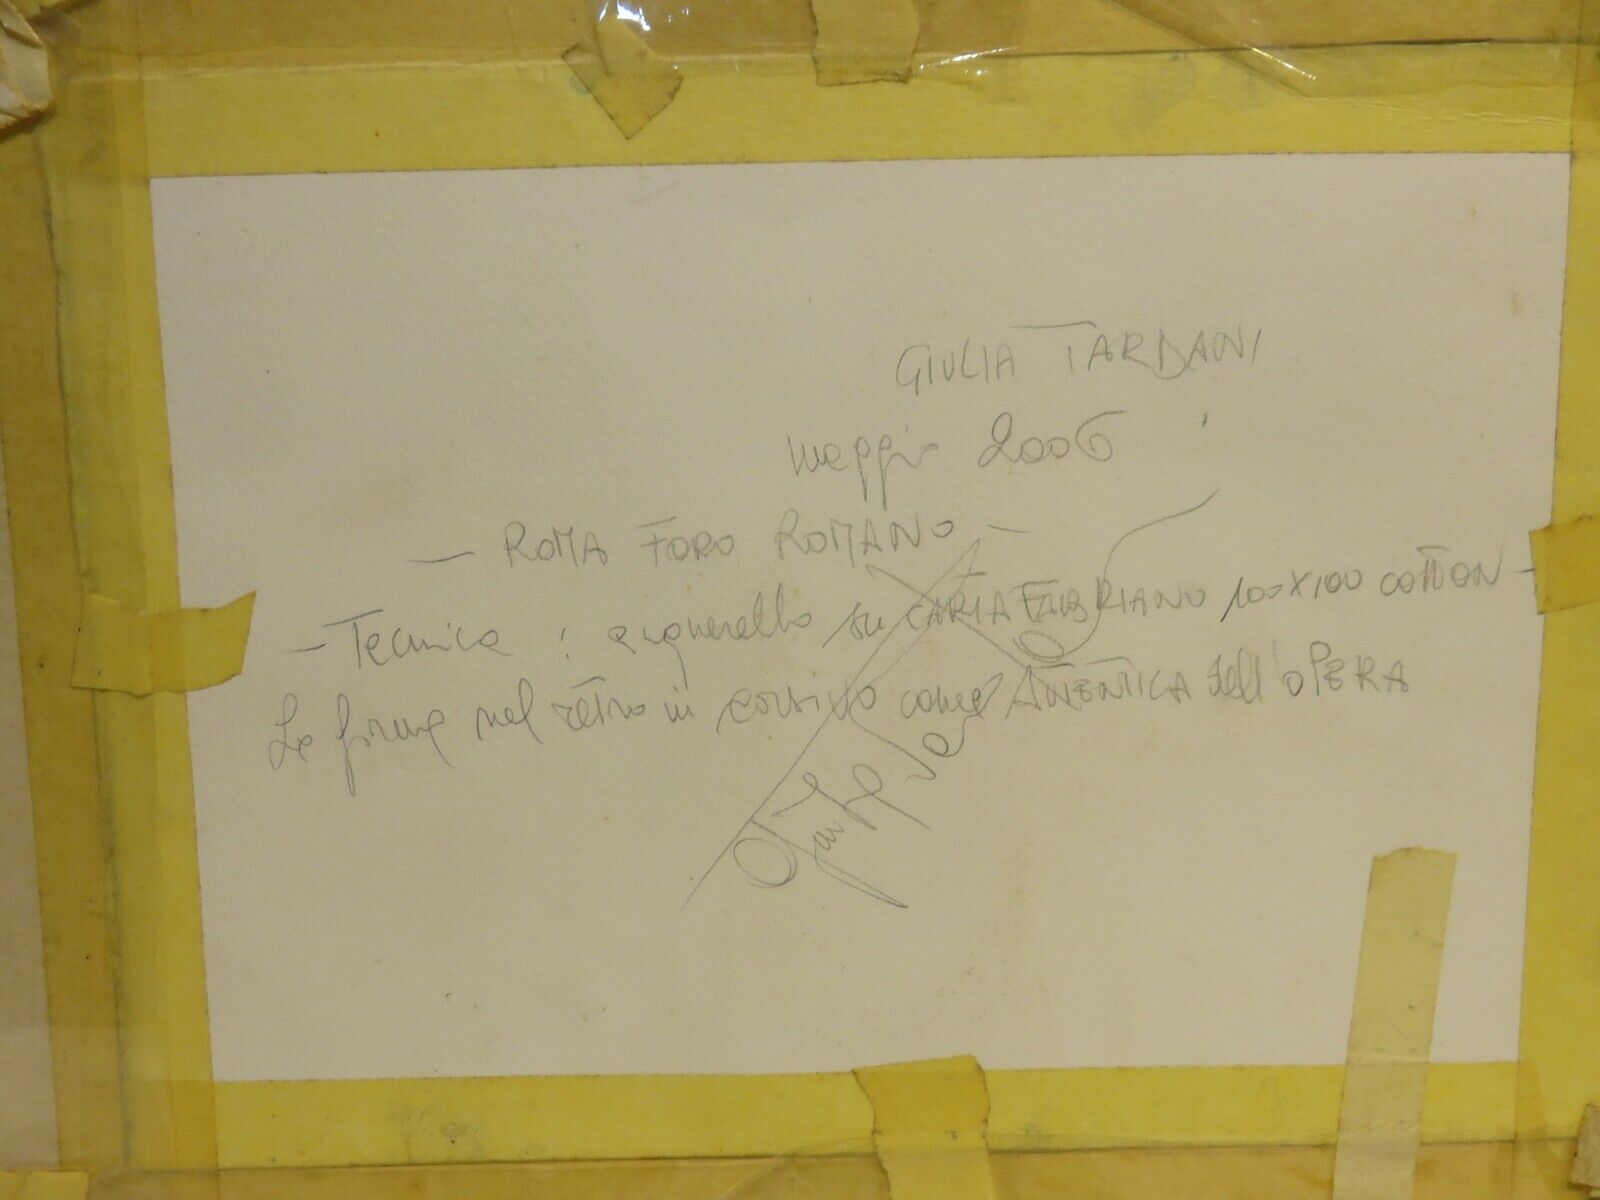 GIULIA TARDANI
maggio 2006
- ROMA FORO ROMANO -
- Tecnica : acquerello su CARTA FABRIANO 100X100 COTTON -
La firma nel retro in corsivo come AUTENTICA dell'OPERA